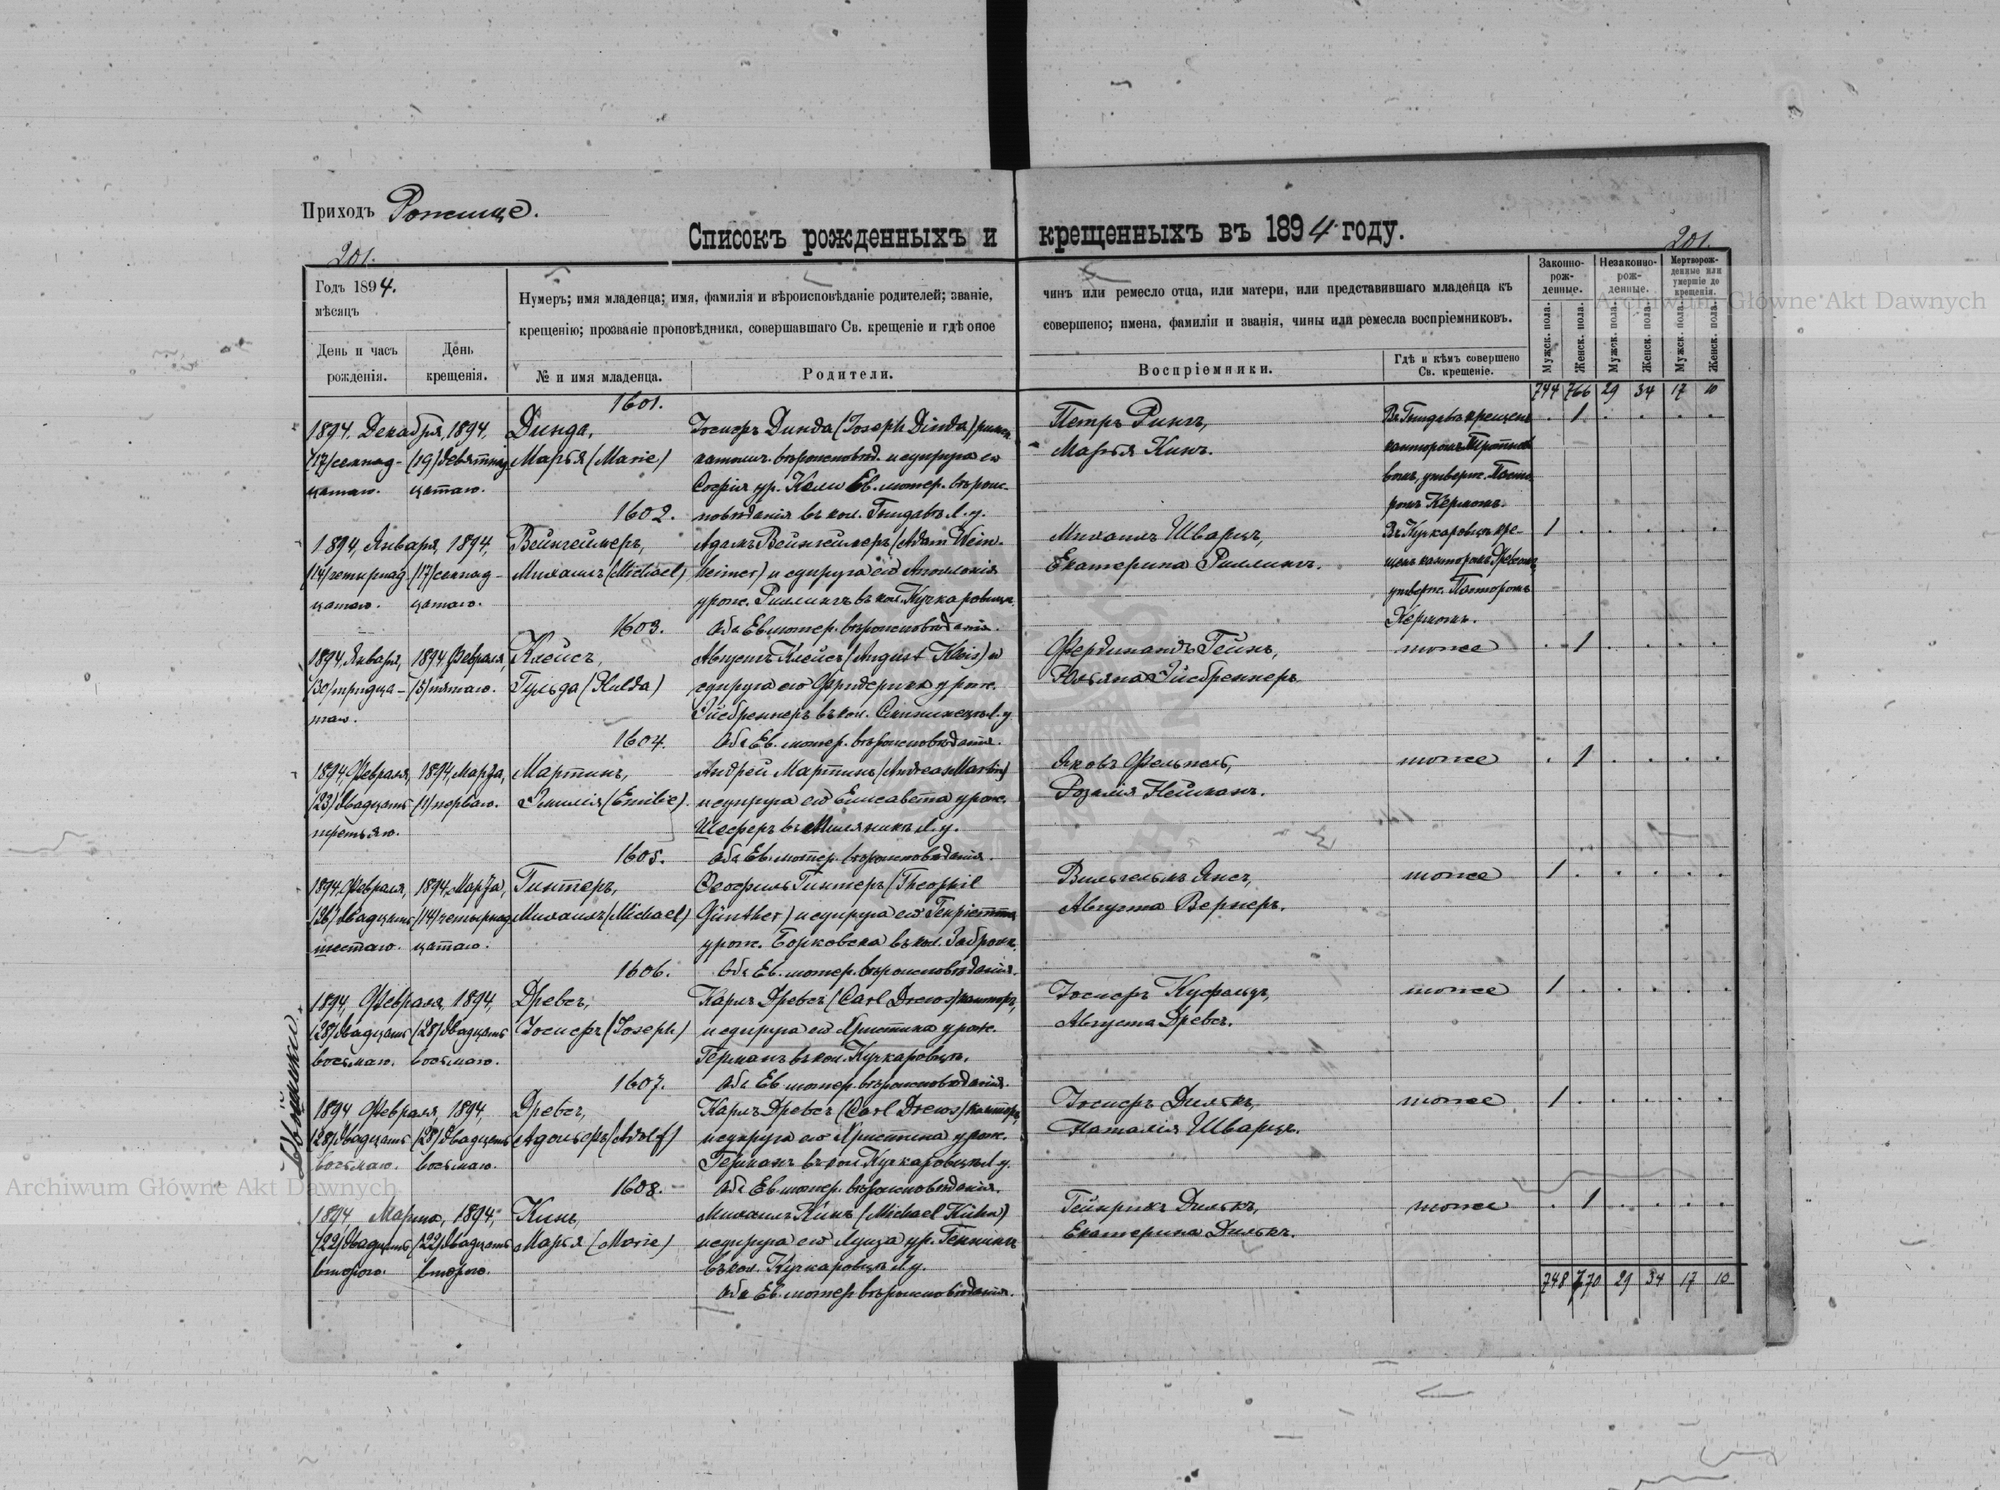 Приходъ Рожище.
Списокъ рожденныхъ и крещенныхъ въ 1894 году.
201.
201.
Годъ 1894.
мѣсяцъ
День и часъ рожденія.
День крещенія.
Нумеръ; имя младенца; имя, фамилія и вѣроисповѣданіе родителей; званіе, чинъ или ремесло отца, или матери, или представившаго младенца къ
крещенію; прозваніе проповѣдника, совершавшаго Св. крещеніе и гдѣ оное совершено; имена, фамиліи и званія, чины или ремесла воспріемниковъ.
№ и имя младенца.
Родители.
Воспріемники.
Гдѣ и кѣмъ совершено Св. крещеніе.
Законно-рож-денные.
Незаконно-рож-денные.
Мертворож-денные или умершіе до крещенія.
Мужск. пола.
Женск. пола.
Мужск. пола.
Женск. пола.
Мужск. пола.
Женск. пола.
744 766 29 34 17 10
1601.
1894. Декабря, 1894,
(17) семнад-
цатаго.
(19) девятнад
цатаго.
Динда,
Марья (Marie)
Іосифъ Динда (Joseph Dinda) римск
католич. вѣроисповѣд. и супруга его
Софія ур. Ев. лютер. вѣроис-
повѣданія въ кол. Л. у.
Петръ Рингъ,
Марья Кинъ.
крещена
канторомъ
утвержд. Пасто
ромъ Керномъ.
. 1 . . . .
1602.
1894, Января, 1894,
(14) четырнад
цатаго.
(17) семнад-
цатаго.
Вейнгеймеръ,
Михаилъ (Michael)
Адамъ Вейнгеймеръ (Adam Wein-
heimer) и супруга его Аполлонія
урож. Риллингъ въ кол. Кучкаровцы
Оба Ев. лютер. вѣроисповѣданія.
Михаилъ Шварцъ,
Екатерина Риллингъ.
Въ Кучкаровцѣ кре-
щенъ канторомъ Древсомъ,
утвержд. Пасторомъ
Керномъ.
1 . . . . .
1603.
1894, Января,
(30) тридца-
таго.
1894, Февраля,
(5) пятаго.
Клейсъ,
Гульда (Hulda)
Августъ Клейсъ (August Kleis) и
супруга его Фридерика урож.
Эйсбреннеръ въ кол. Л. у.
Оба Ев. лютер. вѣроисповѣданія.
Фердинандъ Гейнъ,
Юльяна Эйсбреннеръ
тоже
. 1 . . . .
1604.
1894, Февраля,
(23) двадцать
третьяго.
1894, Марта,
(1) перваго.
Мартинъ,
Эмилія (Emilie).
Андрей Мартинъ (Andreas Martin)
и супруга его Елисавета урож.
Шеферъ въ Л. у.
Оба Ев. лютер. вѣроисповѣданія.
Яковъ
Розалія Нейманъ.
тоже
. 1 . . . .
1605.
1894, Февраля,
(26) двадцать
шестаго.
1894, Марта,
(14) четырнад
цатаго.
Гинтеръ,
Михаилъ (Michael)
Ѳеофилъ Гинтеръ (Theophil
Günther) и супруга его Генріетта
урож. Борковска въ кол.
Оба Ев. лютер. вѣроисповѣданія.
Вильгельмъ Янсъ,
Августа Вернеръ.
тоже
1 . . . . .
1606.
1894, Февраля, 1894
(28) двадцать
восьмаго.
(28) двадцать
восьмаго.
Древсъ,
Іосифъ (Joseph)
Карлъ Древсъ (Carl Drews) канторъ,
и супруга его Христина урож.
Германъ въ кол. Кучкаровцѣ,
Оба Ев. лютер. вѣроисповѣданія.
Іосифъ
Августа Древсъ.
тоже
1 . . . . .
Двойники.
1607.
1894 Февраля, 1894,
(28) двадцать
восьмаго.
(28) двадцать
восьмаго.
Древсъ,
Адольфъ (Adolf)
Карлъ Древсъ (Carl Drews) канторъ,
и супруга его Христина урож.
Германъ въ кол. Кучкаровцѣ Л. у.
Оба Ев. лютер. вѣроисповѣданія.
Іосифъ Дилькъ,
Наталія Шварцъ.
тоже
1 . . . . .
1608.
1894 Марта, 1894,
(22) двадцать
второго.
(22) двадцать
второго.
Кинъ,
Марья (Marie)
Михаилъ Кинъ (Michael Kühn)
и супруга его Луиза ур.
въ кол. Кучкаровцѣ Л. у.
Оба Ев. лютер. вѣроисповѣданія.
Гейнрихъ Дилькъ,
Екатерина Дилькъ.
тоже
. 1 . . . .
748 770 29 34 17 10
Archiwum Główne Akt Dawnych
Archiwum Główne Akt Dawnych